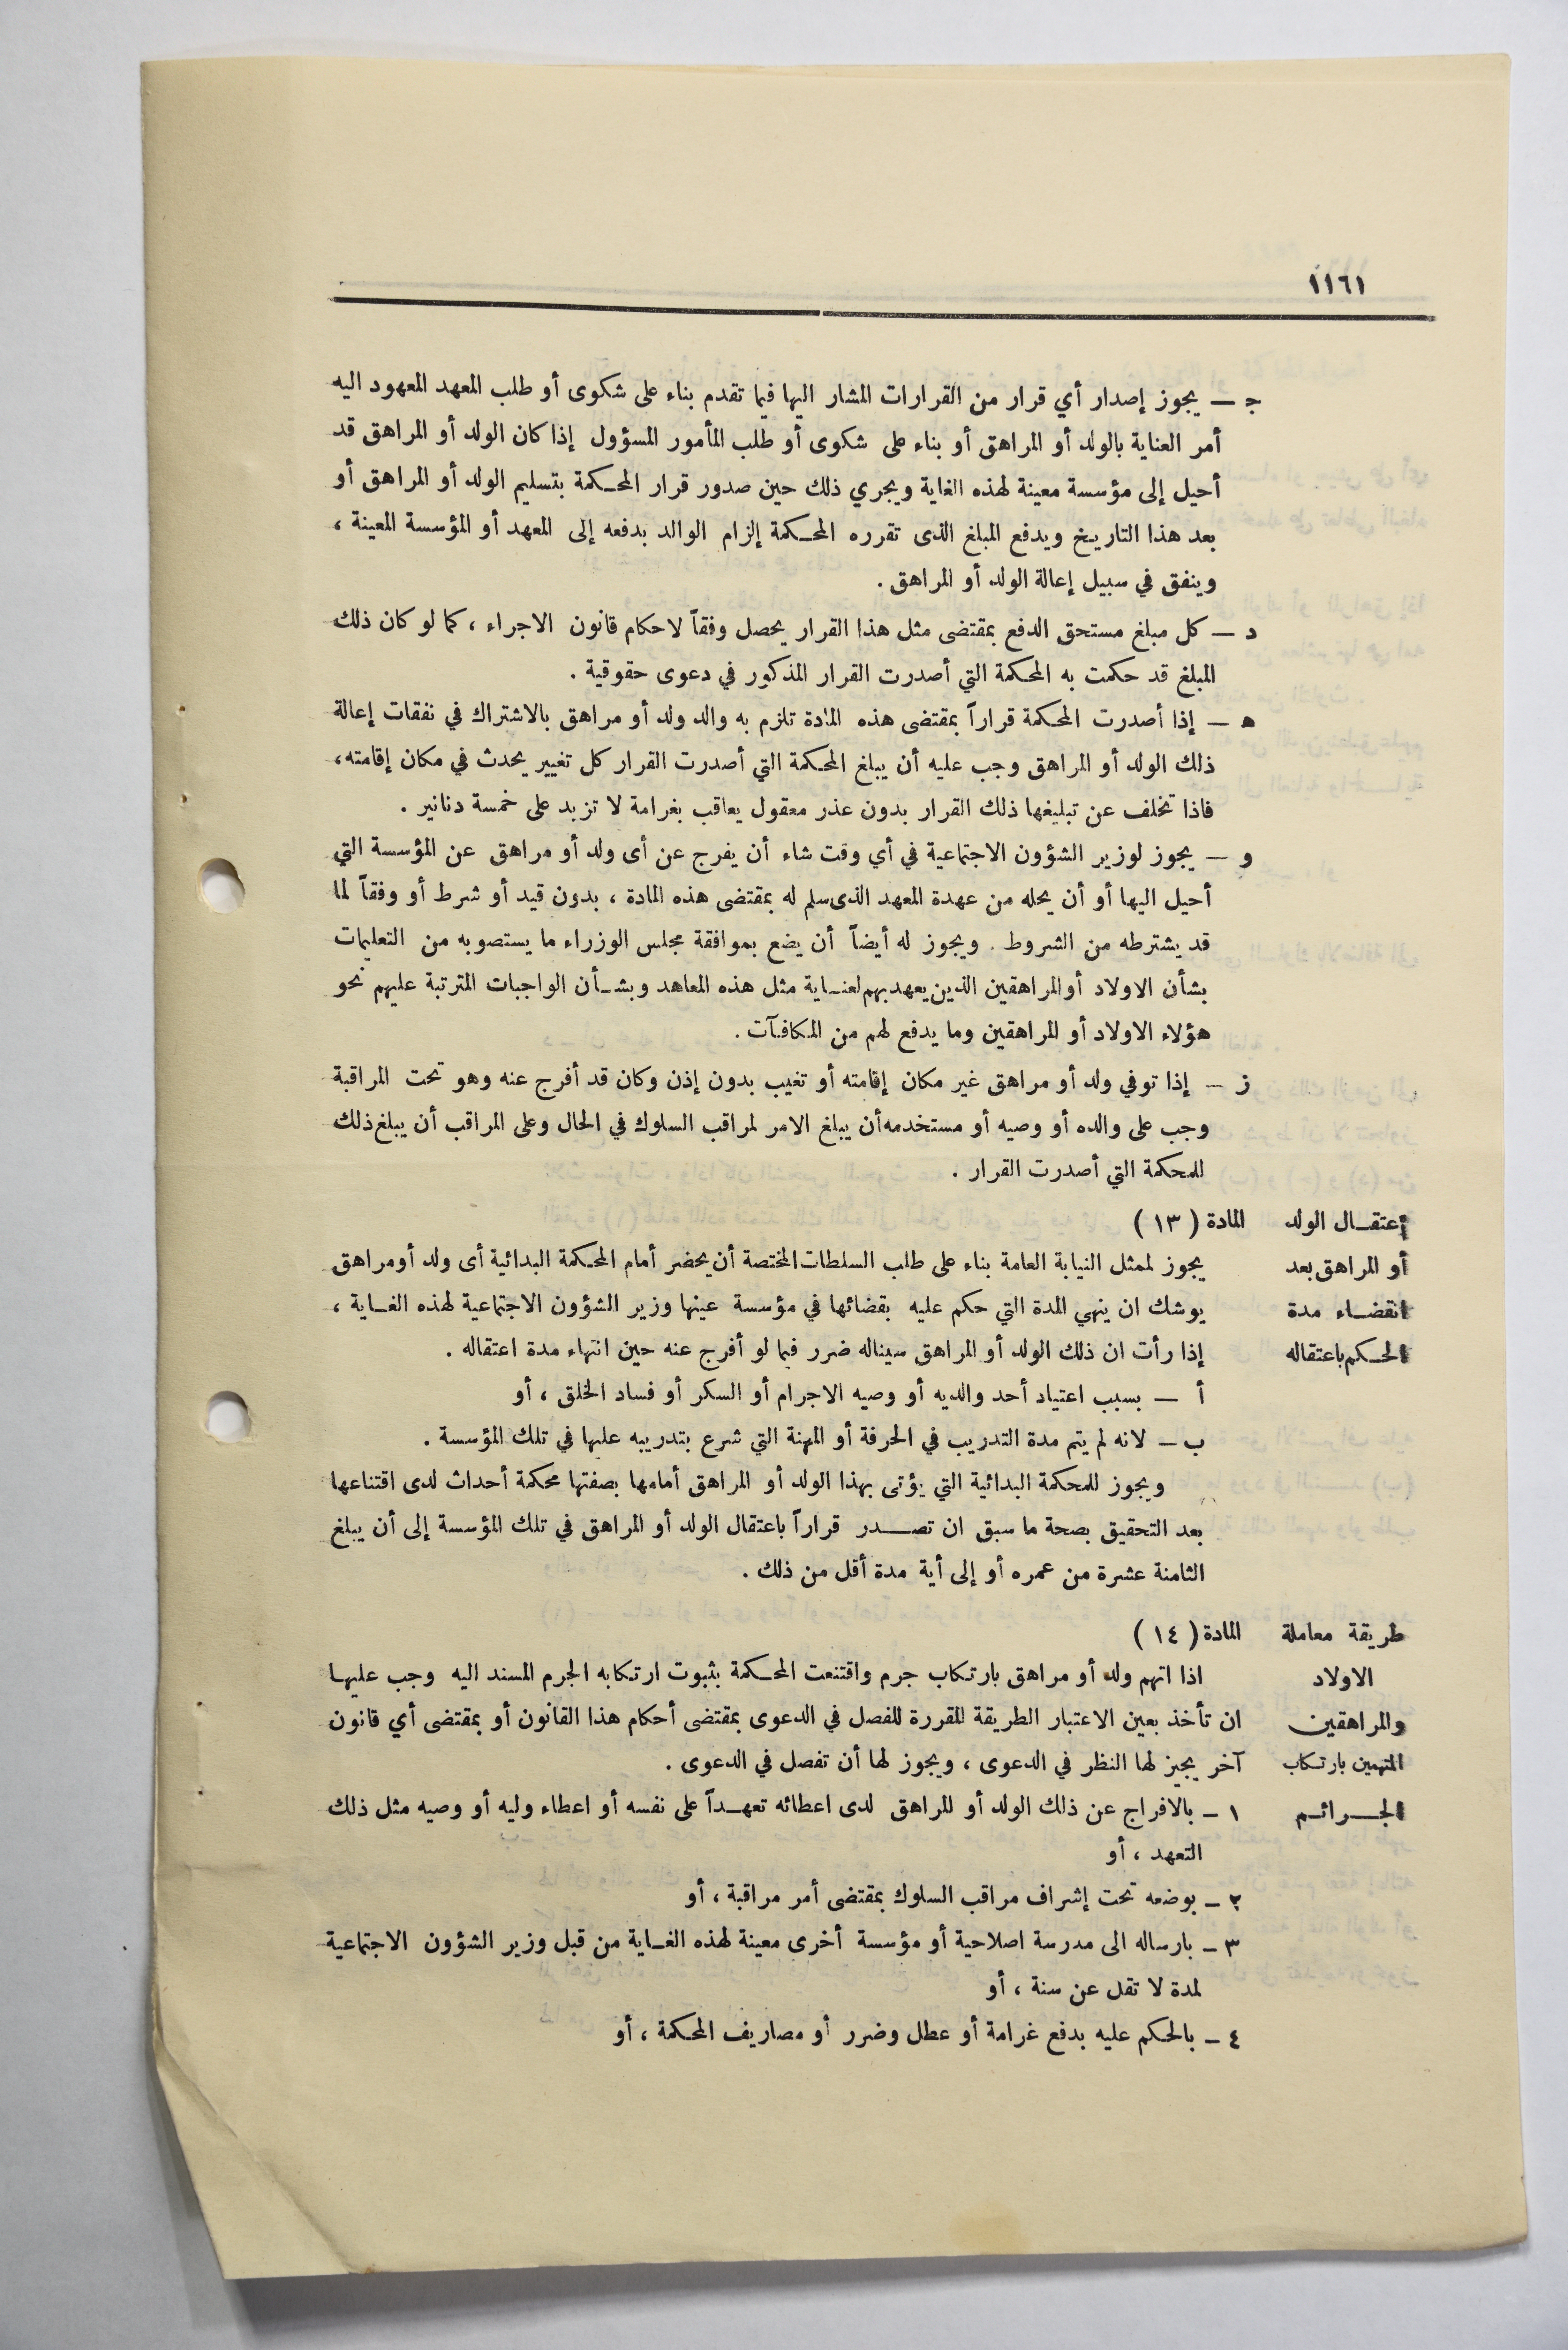 ١١٦١
ج — يجوز إصدار أي قرار من القرارات المشار اليها فيما تقدم بناء على شكوى أو طلب المعهد المعهود اليه
أمر العناية بالولد أو المراهق أو بناء على شكوى أو طلب المأمور المسؤول إذا كان الولد أو المراهق قد
أحيل إلى مؤسسة معينة لهذه الغاية ويجري ذلك حين صدور قرار المحكمة بتسليم الولد أو المراهق أو
بعد هذا التاريخ ويدفع المبلغ الذى تقرره المحكمة إلزام الوالد بدفعه إلى المعهد أو المؤسسة المعينة ،
وينفق في سبيل إعالة الولد أو المراهق .
د — كل مبلغ مستحق الدفع بمقتضى مثل هذا القرار يحصل وفقاً لاحكام قانون الاجراء ، كما لو كان ذلك
المبلغ قد حكمت به المحكمة التي أصدرت القرار المذكور في دعوى حقوقية .
ه — إذا أصدرت المحكمة قراراً بمقتضى هذه المادة تلزم به والد ولد أو مراهق بالاشتراك في نفقات إعالة
ذلك الولد أو المراهق وجب عليه أن يبلغ المحكمة التي أصدرت القرار كل تغيير يحدث في مكان إقامته ،
فاذا تخلف عن تبليغها ذلك القرار بدون عذر معقول يعاقب بغرامة لا تزيد على خمسة دنانير .
و — يجوز لوزير الشؤون الاجتماعية في أي وقت شاء أن يفرج عن أى ولد أو مراهق عن المؤسسة التي
أحيل اليها أو أن يحله من عهدة المعهد الذى سلم له بمقتضى هذه المادة ، بدون قيد أو شرط أو وفقاً لما
قد يشترطه من الشروط . ويجوز له أيضاً أن يضع بموافقة مجلس الوزراء ما يستصوبه من التعليمات
بشأن الاولاد أو المراهقين الذين يعهد بهم لعناية مثل هذه المعاهد وبشأن الواجبات المترتبة عليهم نحو
هؤلاء الاولاد أو المراهقين وما يدفع لهم من المكافآت .
ز — إذا توفي ولد أو مراهق غير مكان إقامته أو تغيب بدون إذن وكان قد أفرج عنه وهو تحت المراقبة
وجب على والده أو وصيه أو مستخدمه أن يبلغ الامر لمراقب السلوك في الحال وعلى المراقب أن يبلغ ذلك
للمحكمة التي أصدرت القرار .
إعتقال الولد المادة ( ١٣ )
أو المراهق بعد يجوز لممثل النيابة العامة بناء على طلب السلطات المختصة أن يحضر أمام المحكمة البدائية أى ولد أو مراهق
انقضاء مدة يوشك ان ينهي المدة التي حكم عليه بقضائها في مؤسسة عينها وزير الشؤون الاجتماعية لهذه الغاية ،
الحكم باعتقاله إذا رأت ان ذلك الولد أو المراهق سيناله ضرر فيما لو أفرج عنه حين انتهاء مدة اعتقاله .
أ — بسبب اعتياد أحد والديه أو وصيه الاجرام أو السكر أو فساد الخلق ، أو
ب — لانه لم يتم مدة التدريب في الحرفة أو المهنة التي شرع بتدريبه عليها في تلك المؤسسة .
ويجوز للمحكمة البدائية التي يؤتى بهذا الولد أو المراهق أمامها بصفتها محكمة أحداث لدى اقتناعها
بعد التحقيق بصحة ما سبق ان تصدر قراراً باعتقال الولد أو المراهق في تلك المؤسسة إلى أن يبلغ
الثامنة عشرة من عمره أو إلى أية مدة أقل من ذلك .
طريقة معاملة المادة ( ١٤ )
الاولاد اذا اتهم ولد أو مراهق بارتكاب جرم واقتنعت المحكمة بثبوت ارتكابه الجرم المسند اليه وجب عليها
والمراهقين ان تأخذ بعين الاعتبار الطريقة المقررة للفصل في الدعوى بمقتضى أحكام هذا القانون أو بمقتضى أي قانون
المتهمين بارتكاب آخر يجيز لها النظر في الدعوى ، ويجوز لها أن تفصل في الدعوى .
الجرائم ١ — بالافراج عن ذلك الولد أو المراهق لدى اعطائه تعهداً على نفسه أو اعطاء وليه أو وصيه مثل ذلك
التعهد ، أو
٢ — بوضعه تحت إشراف مراقب السلوك بمقتضى أمر مراقبة ، أو
٣ — بارساله الى مدرسة اصلاحية أو مؤسسة أخرى معينة لهذه الغاية من قبل وزير الشؤون الاجتماعية
لمدة لا تقل عن سنة ، أو
٤ — بالحكم عليه بدفع غرامة أو عطل وضرر أو مصاريف المحكمة ، أو